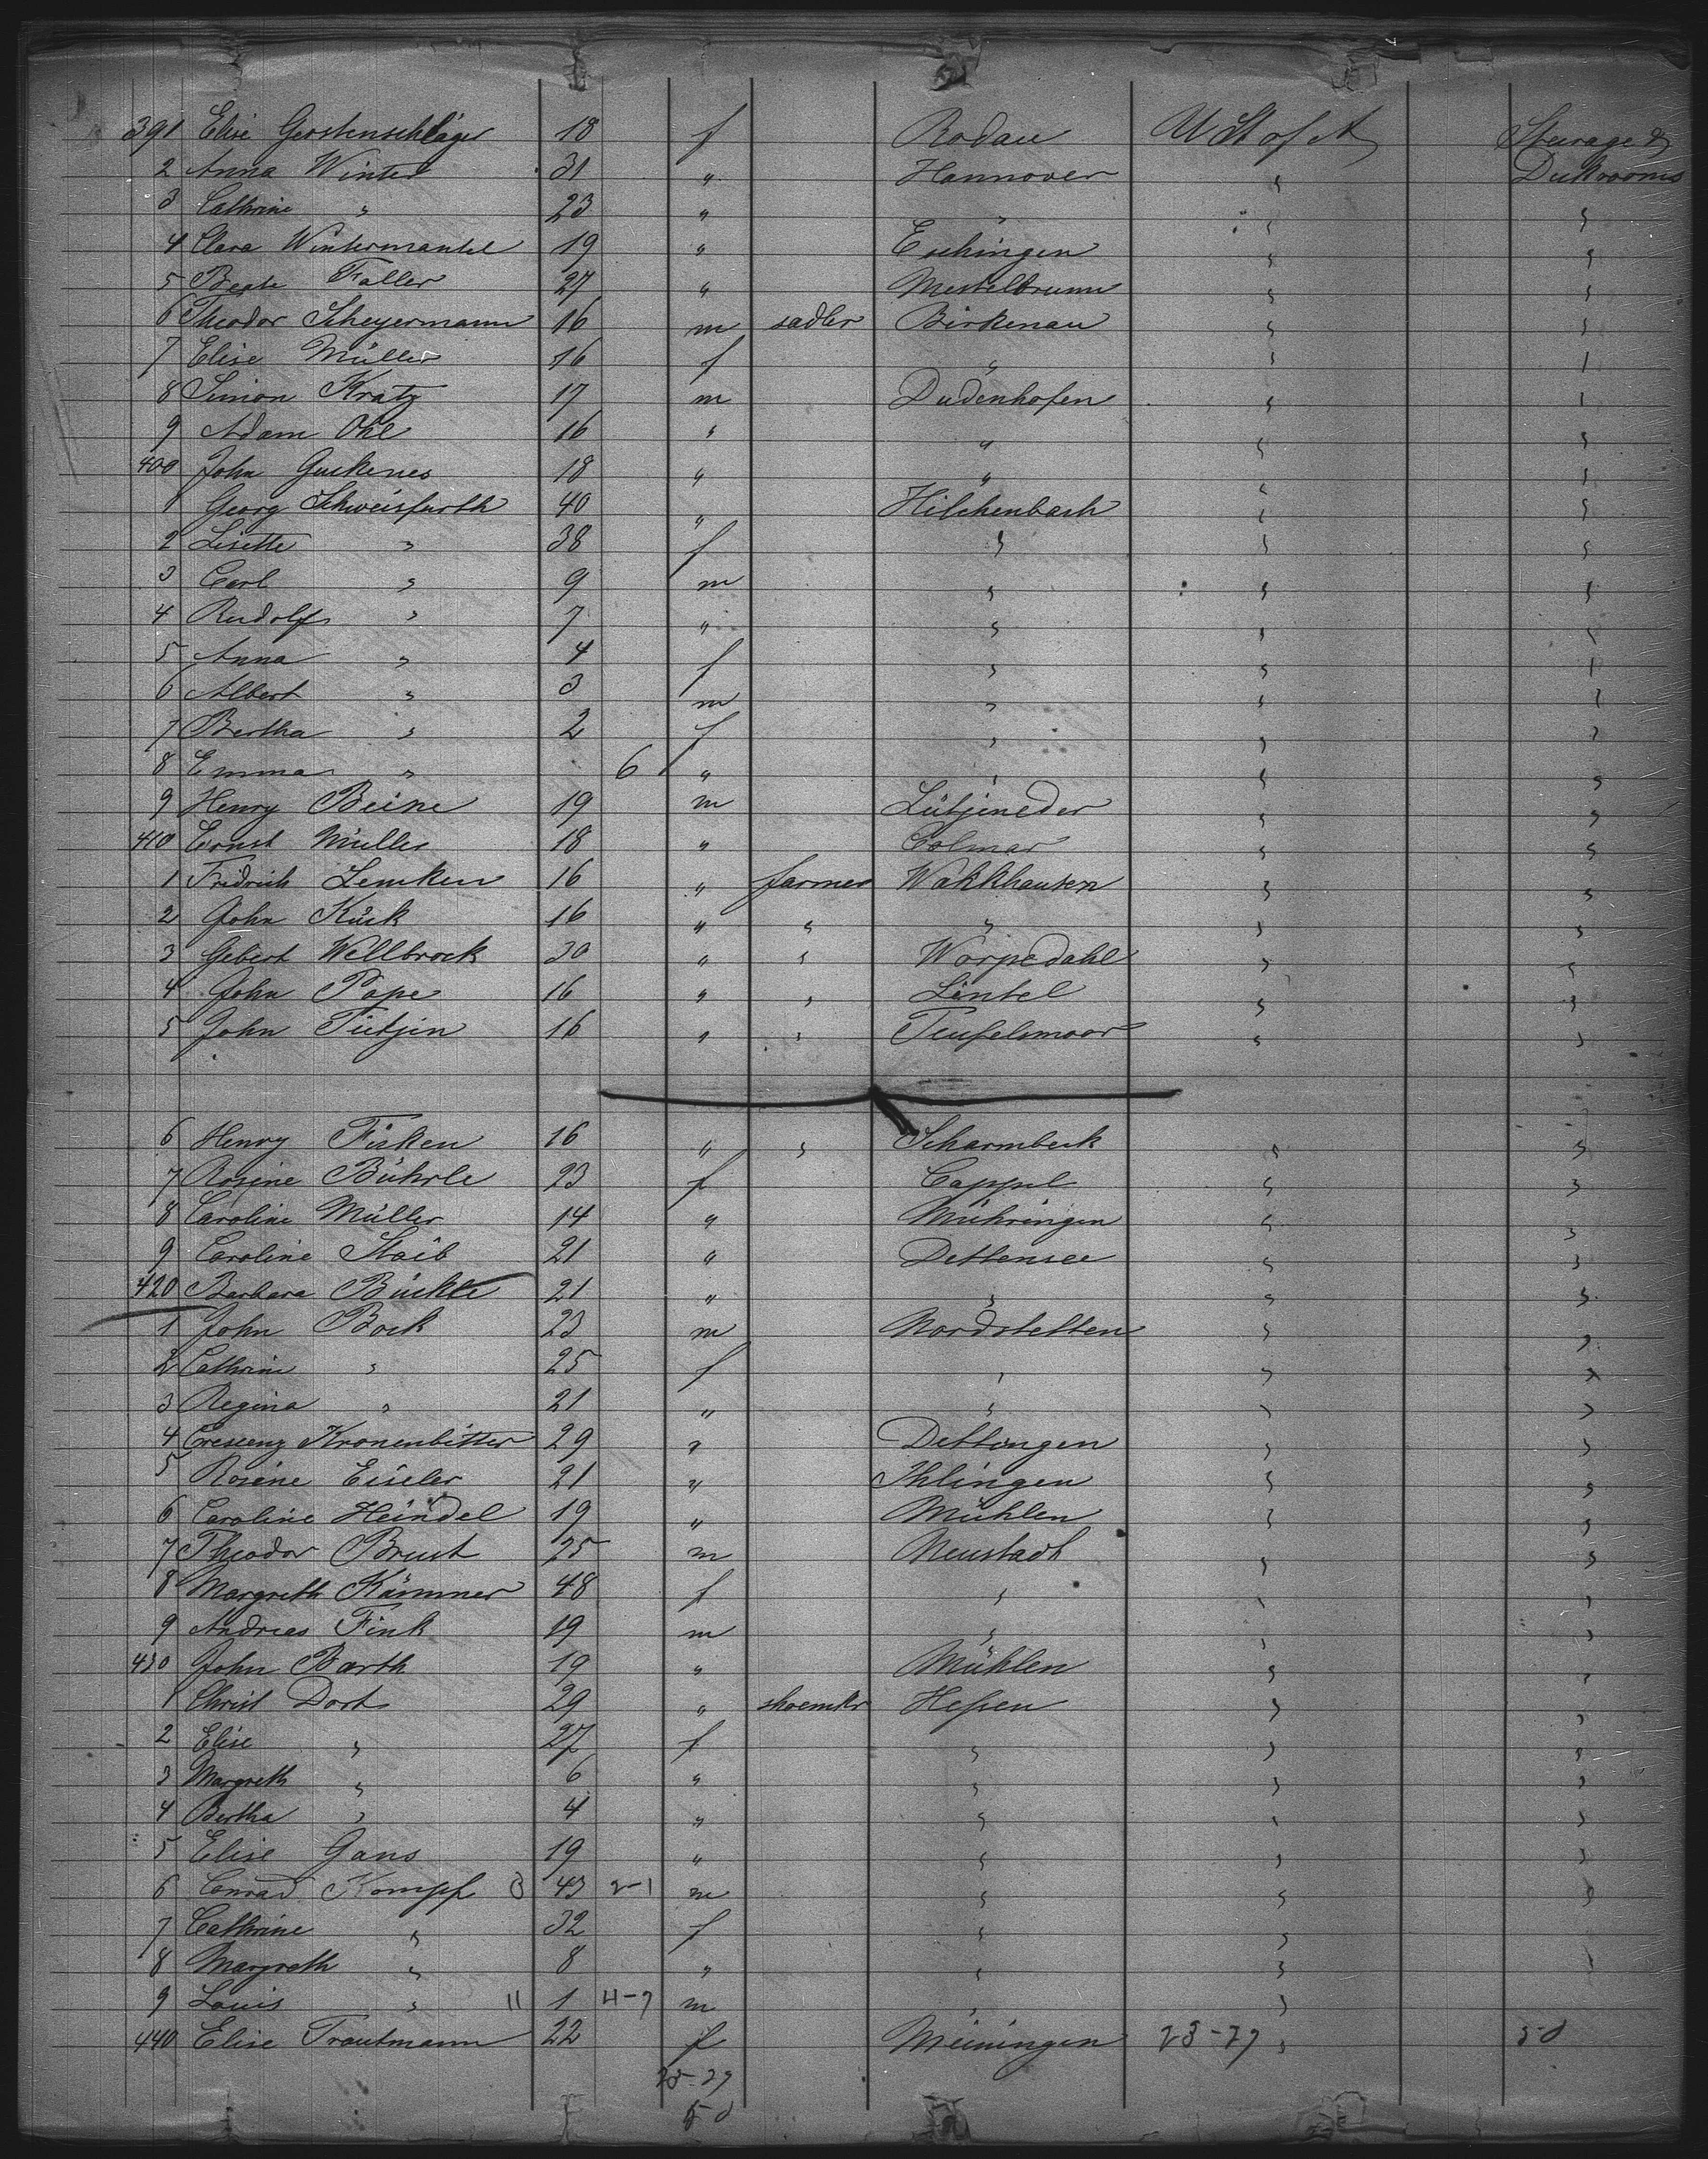 391 Elise Gerstenschläger 18 f Rodau U St of A Steerage &
2 Anna Winter 31 " Hannover " Deckrooms
3 Cathrine " 23 " " " "
4 Clara Wintermantel 19 " Eschingen " "
5 Beate Faller 27 " Mestelbrunn " "
6 Theodor Scheyermann 16 m sadler Birkenau " "
7 Elise Müller 16 f " " "
8 Simon Kratz 17 m Dudenhofen " "
9 Adam Ohl 16 " " " "
400 John Guckenes 18 " " " "
1 Georg Schweisfurth 40 " Hilchenbach " "
2 Lisette " 38 f " " "
3 Carl " 9 m " " "
4 Rudolf " 7 " " " "
5 Anna " 4 f " " "
6 Albert " 3 m " " "
7 Bertha " 2 f " " "
8 Emma " 6 " " " "
9 Henry Beine 19 m Lütjeneder " "
410 Ernst Müller 18 " Colmar " "
1 Fridrich Lemken 16 " farmer Wakkhausen " "
2 John Kück 16 " " " " "
3 Gebert Wellbrock 30 " " Worpedahl " "
4 John Pape 16 " " Lintel " "
5 John Tietjin 16 " " Teufelsmoor " "
6 Henry Fisken 16 " " Scharmbeck " "
7 Rosine Bührle 23 f Cappel " "
8 Caroline Müller 14 " Mühringen " "
9 Caroline Staib 21 " Dettensee " "
420 Barbara Bückle 21 " " " "
1 John Bock 23 m Nordstetten " "
2 Cathrine " 25 f " " "
3 Regina " 21 " " " "
4 Crescenz Kronenbitter 29 " Dettingen " "
5 Rosine Eiseler 21 " Ihlingen " "
6 Caroline Heindel 19 " Mühlen " "
7 Theodor Brust 25 m Neustadt " "
8 Margreth Kämmer 48 f " " "
9 Andreas Fink 19 m " " "
430 John Barth 19 " Mühlen " "
1 Christ Dort 29 " shoemkr Hessen " "
2 Elise " 27 f " " "
3 Margreth " 6 " " " "
4 Bertha " 4 " " " "
5 Elise Gans 19 " " " "
6 Conrad Kompf 3 43 2-1 m " " "
7 Cathrine " 32 f " "
8 Margreth " 8 " " " "
9 Louis " 11 1 4-7 m " "
440 Elise Trautmann 22 f Meiningen 23-27 " 50
23-27
50